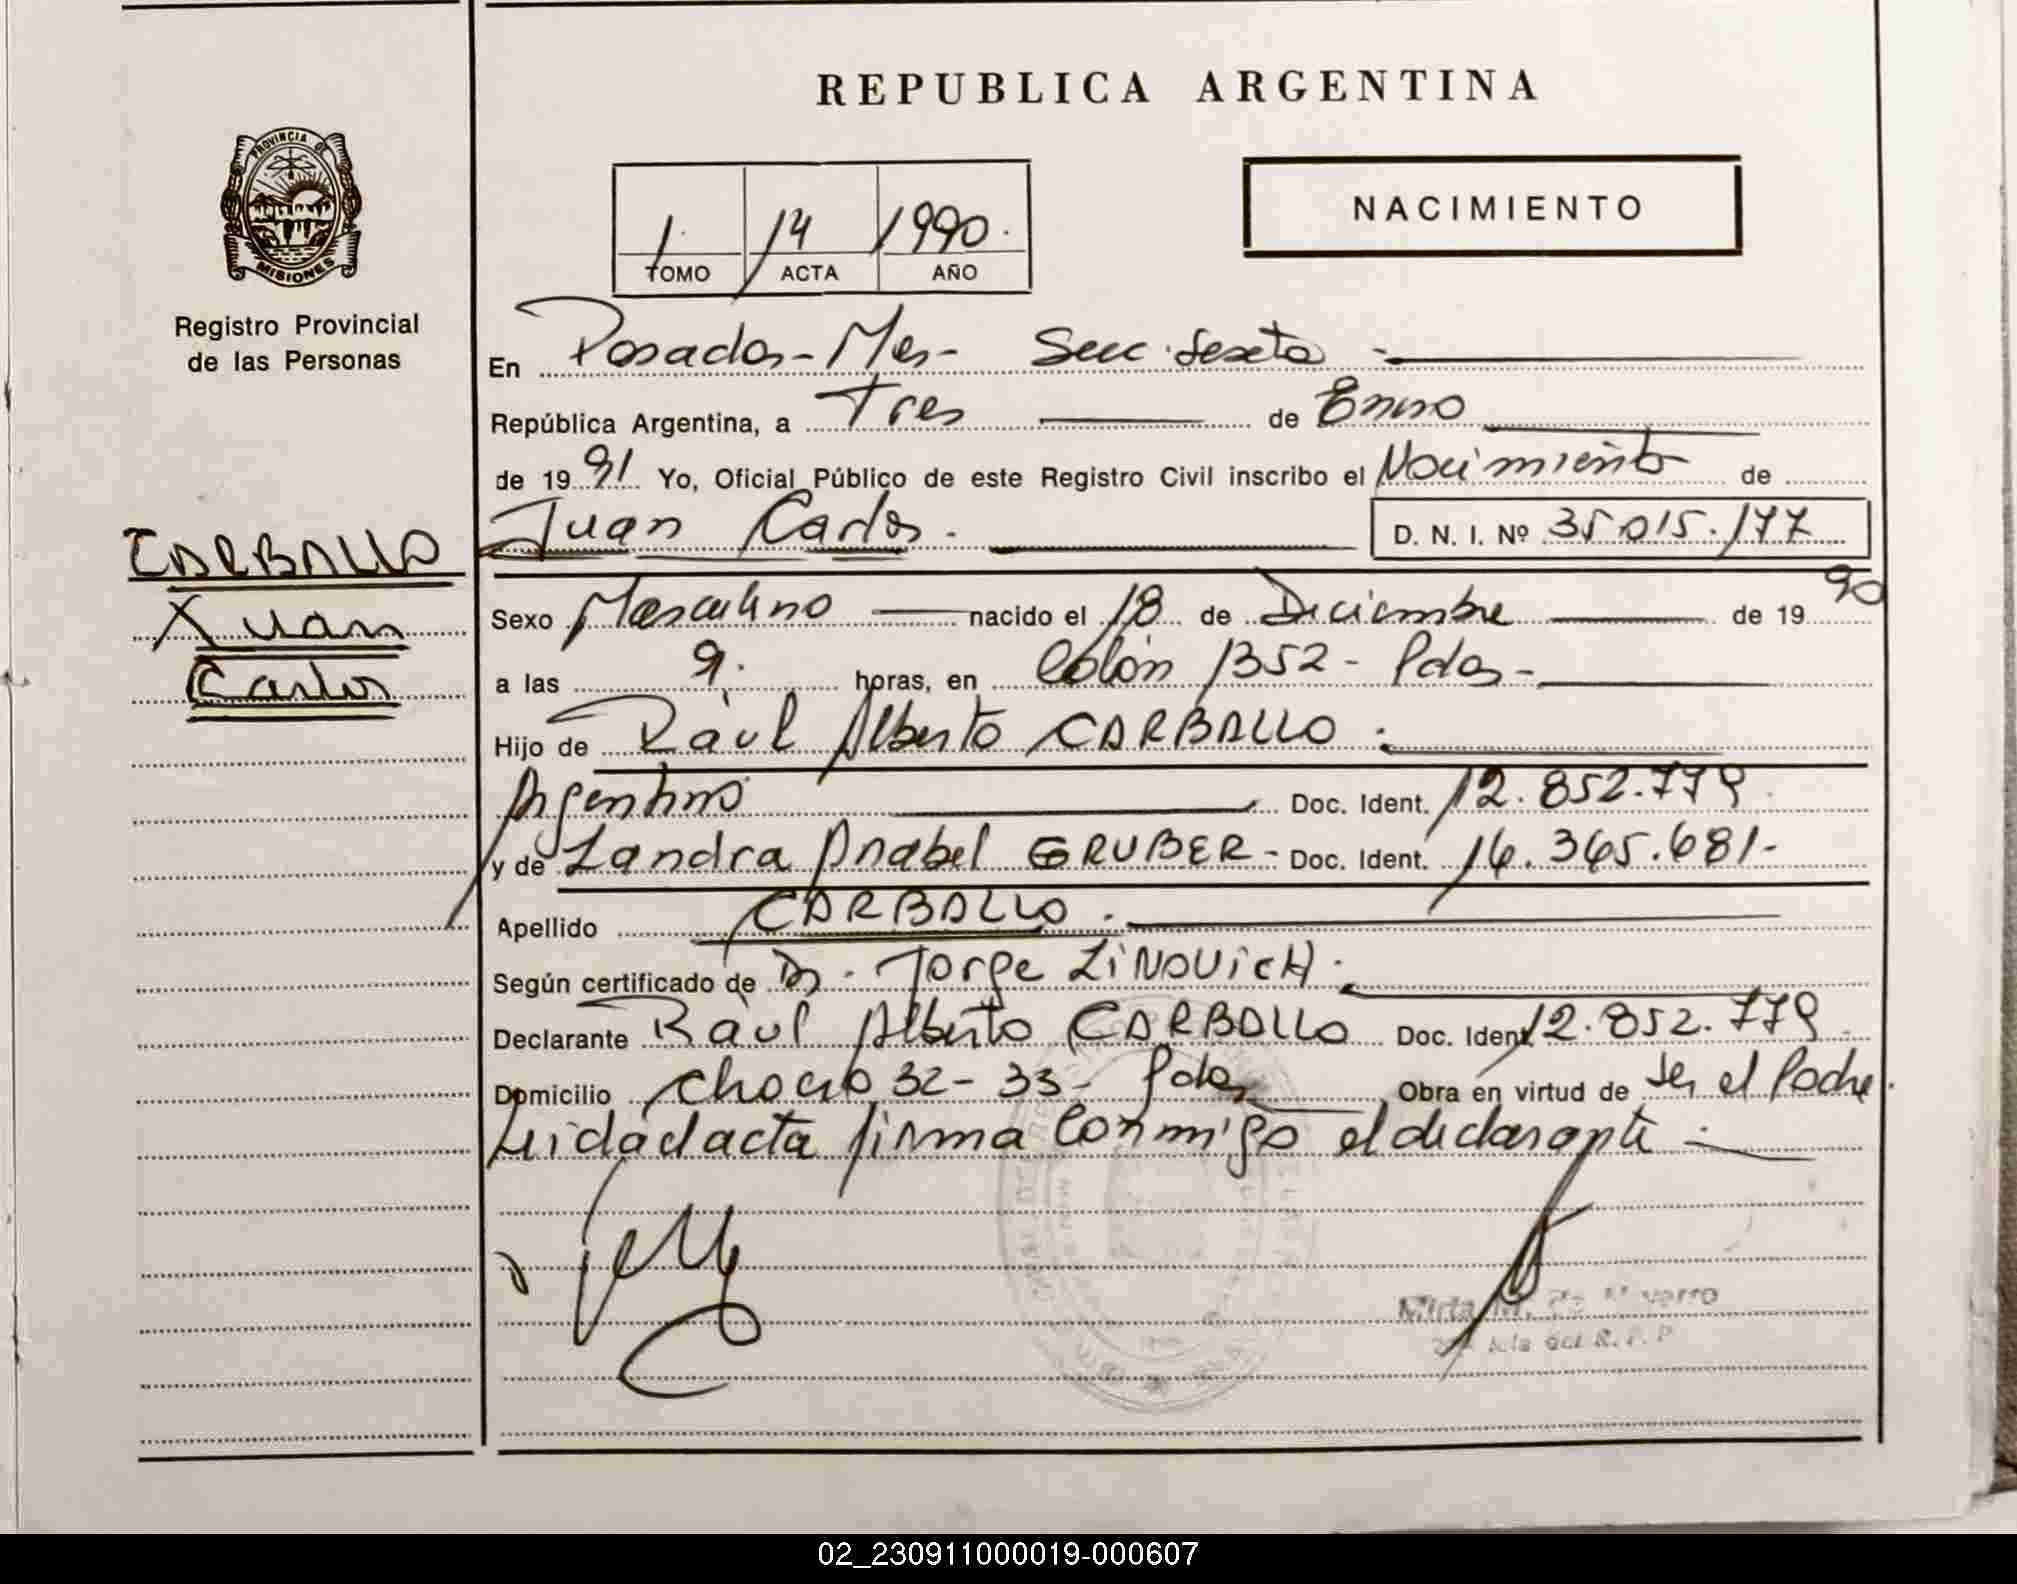 REPUBLICA ARGENTINA
PROVINCIA DE
MISIONES
Registro Provincial
de las Personas
1 14 1990.
TOMO ACTA AÑO
NACIMIENTO
En Posadas-Mes- Secc. Sexta
República Argentina, a Tres de Enero
de 1991 Yo, Oficial Público de este Registro Civil inscribo el Nacimiento de
Juan Carlos. D. N. I. Nº 35.015.177
CARBALLO
Juan
Carlos
Sexo Masculino nacido el 18 de Diciembre de 1990
a las 9. horas, en Colón 1352 - Pdas-
Hijo de Raúl Alberto CARBALLO.
Argentino Doc. Ident. 12.852.779
y de Sandra Anabel GRUBER- Doc. Ident. 16.365.681-
Apellido CARBALLO.
Según certificado de Dr. Jorge ZINOVICH.
Declarante Raúl Alberto CARBALLO Doc. Ident 12.852.779
Domicilio Chacra 32-33- Pdas Obra en virtud de Ser el Padre.
Leida el acta firma conmigo el declarante
Mirta M. de
R. P. P
02_230911000019-000607